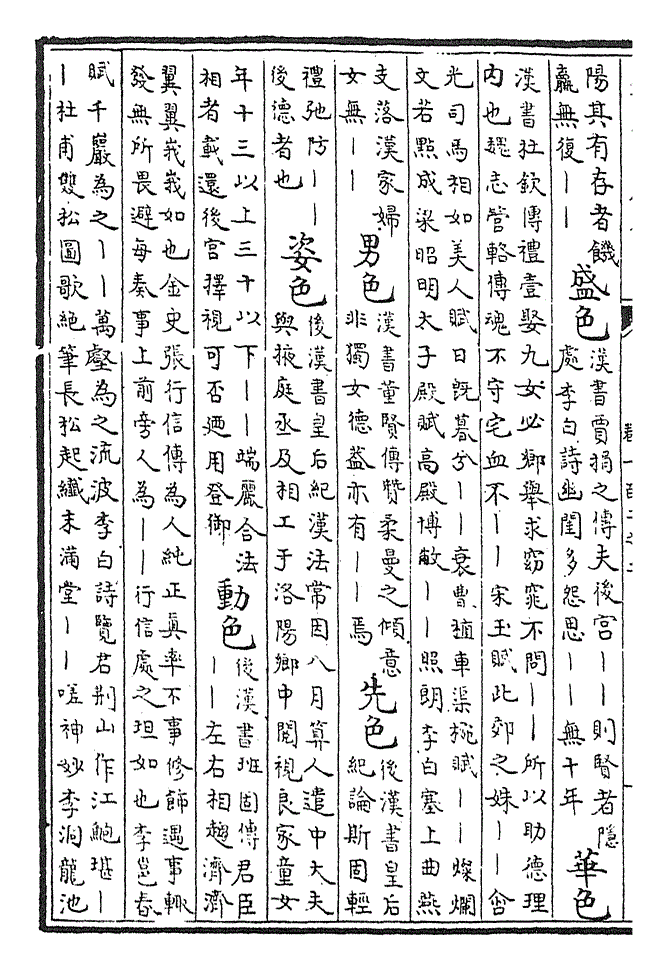 陽其有存者饑
羸無復｜｜
盛色
漢書賈捐之傳夫後宮｜｜則賢者隱
處李白詩幽閨多怨思｜｜無十年
華色
漢書杜欽傳禮壹娶九女必鄉舉求窈窕不問｜｜所以助德理
内也魏志管輅傳魂不守宅血不｜｜宋玉賦此郊之姝｜｜含
光司馬相如美人賦日既暮兮｜｜衰曹植車渠椀賦｜｜燦爛
文若點成梁昭明太子殿賦高殿博敞｜｜照朗李白塞上曲燕
支落漢家婦
女無｜｜
男色
漢書董賢傳贊柔曼之傾意
非獨女德蓋亦有｜｜焉
先色
後漢書皇后
紀論斯固輕
禮弛防｜｜
後德者也
姿色
後漢書皇后紀漢法常因八月算人遣中大夫
與掖庭丞及相工于洛陽鄉中閱視良家童女
年十三以上三十以下｜｜端麗合法
相者載還後宮擇視可否廼用登御
動色
後漢書班固傳君臣
｜｜左右相趨濟濟
翼翼峩峩如也金史張行信傳為人純正真率不事修飾遇事輒
發無所畏避每奏事上前旁人為｜｜行信處之坦如也李邕春
賦千巖為之｜｜萬壑為之流波李白詩覽君荆山作江鮑堪｜
｜杜甫雙松圖歌絕筆長松起纖末滿堂｜｜嗟神妙李洞龍池